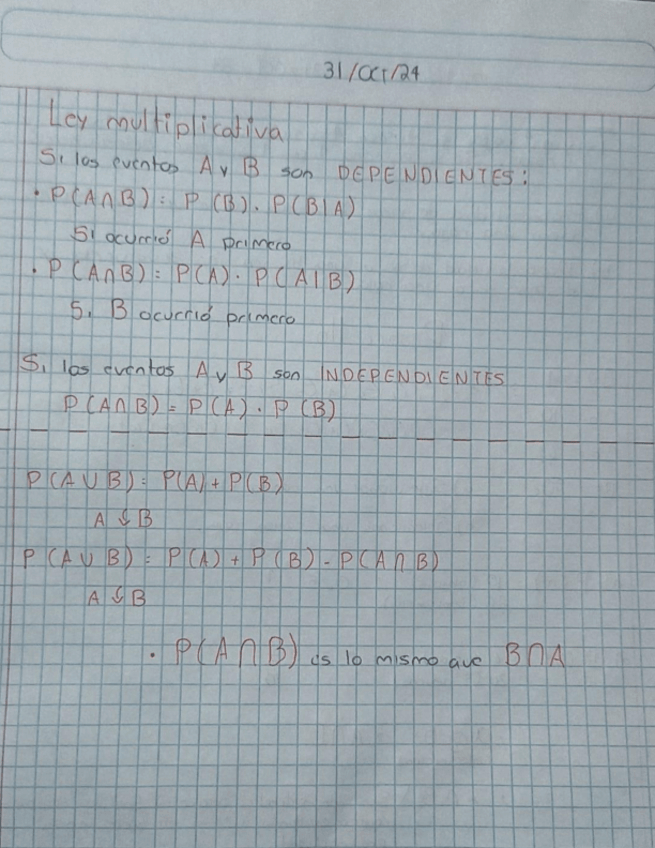 31/Oct/24
Ley multiplicativa
Si los eventos A y B son DEPENDIENTES:
• P(A∩B) = P(B). P(B|A)
Si ocurrió A primero
• P(A∩B) = P(A) · P(A|B)
Si B ocurrió primero
Si los eventos A y B son INDEPENDIENTES
P(A∩B) = P(A) · P(B)
P(A∪B) = P(A) + P(B)
A ó B
P(A∪B) = P(A) + P(B) - P(A∩B)
A ó B
• P(A∩B) es lo mismo que B∩A